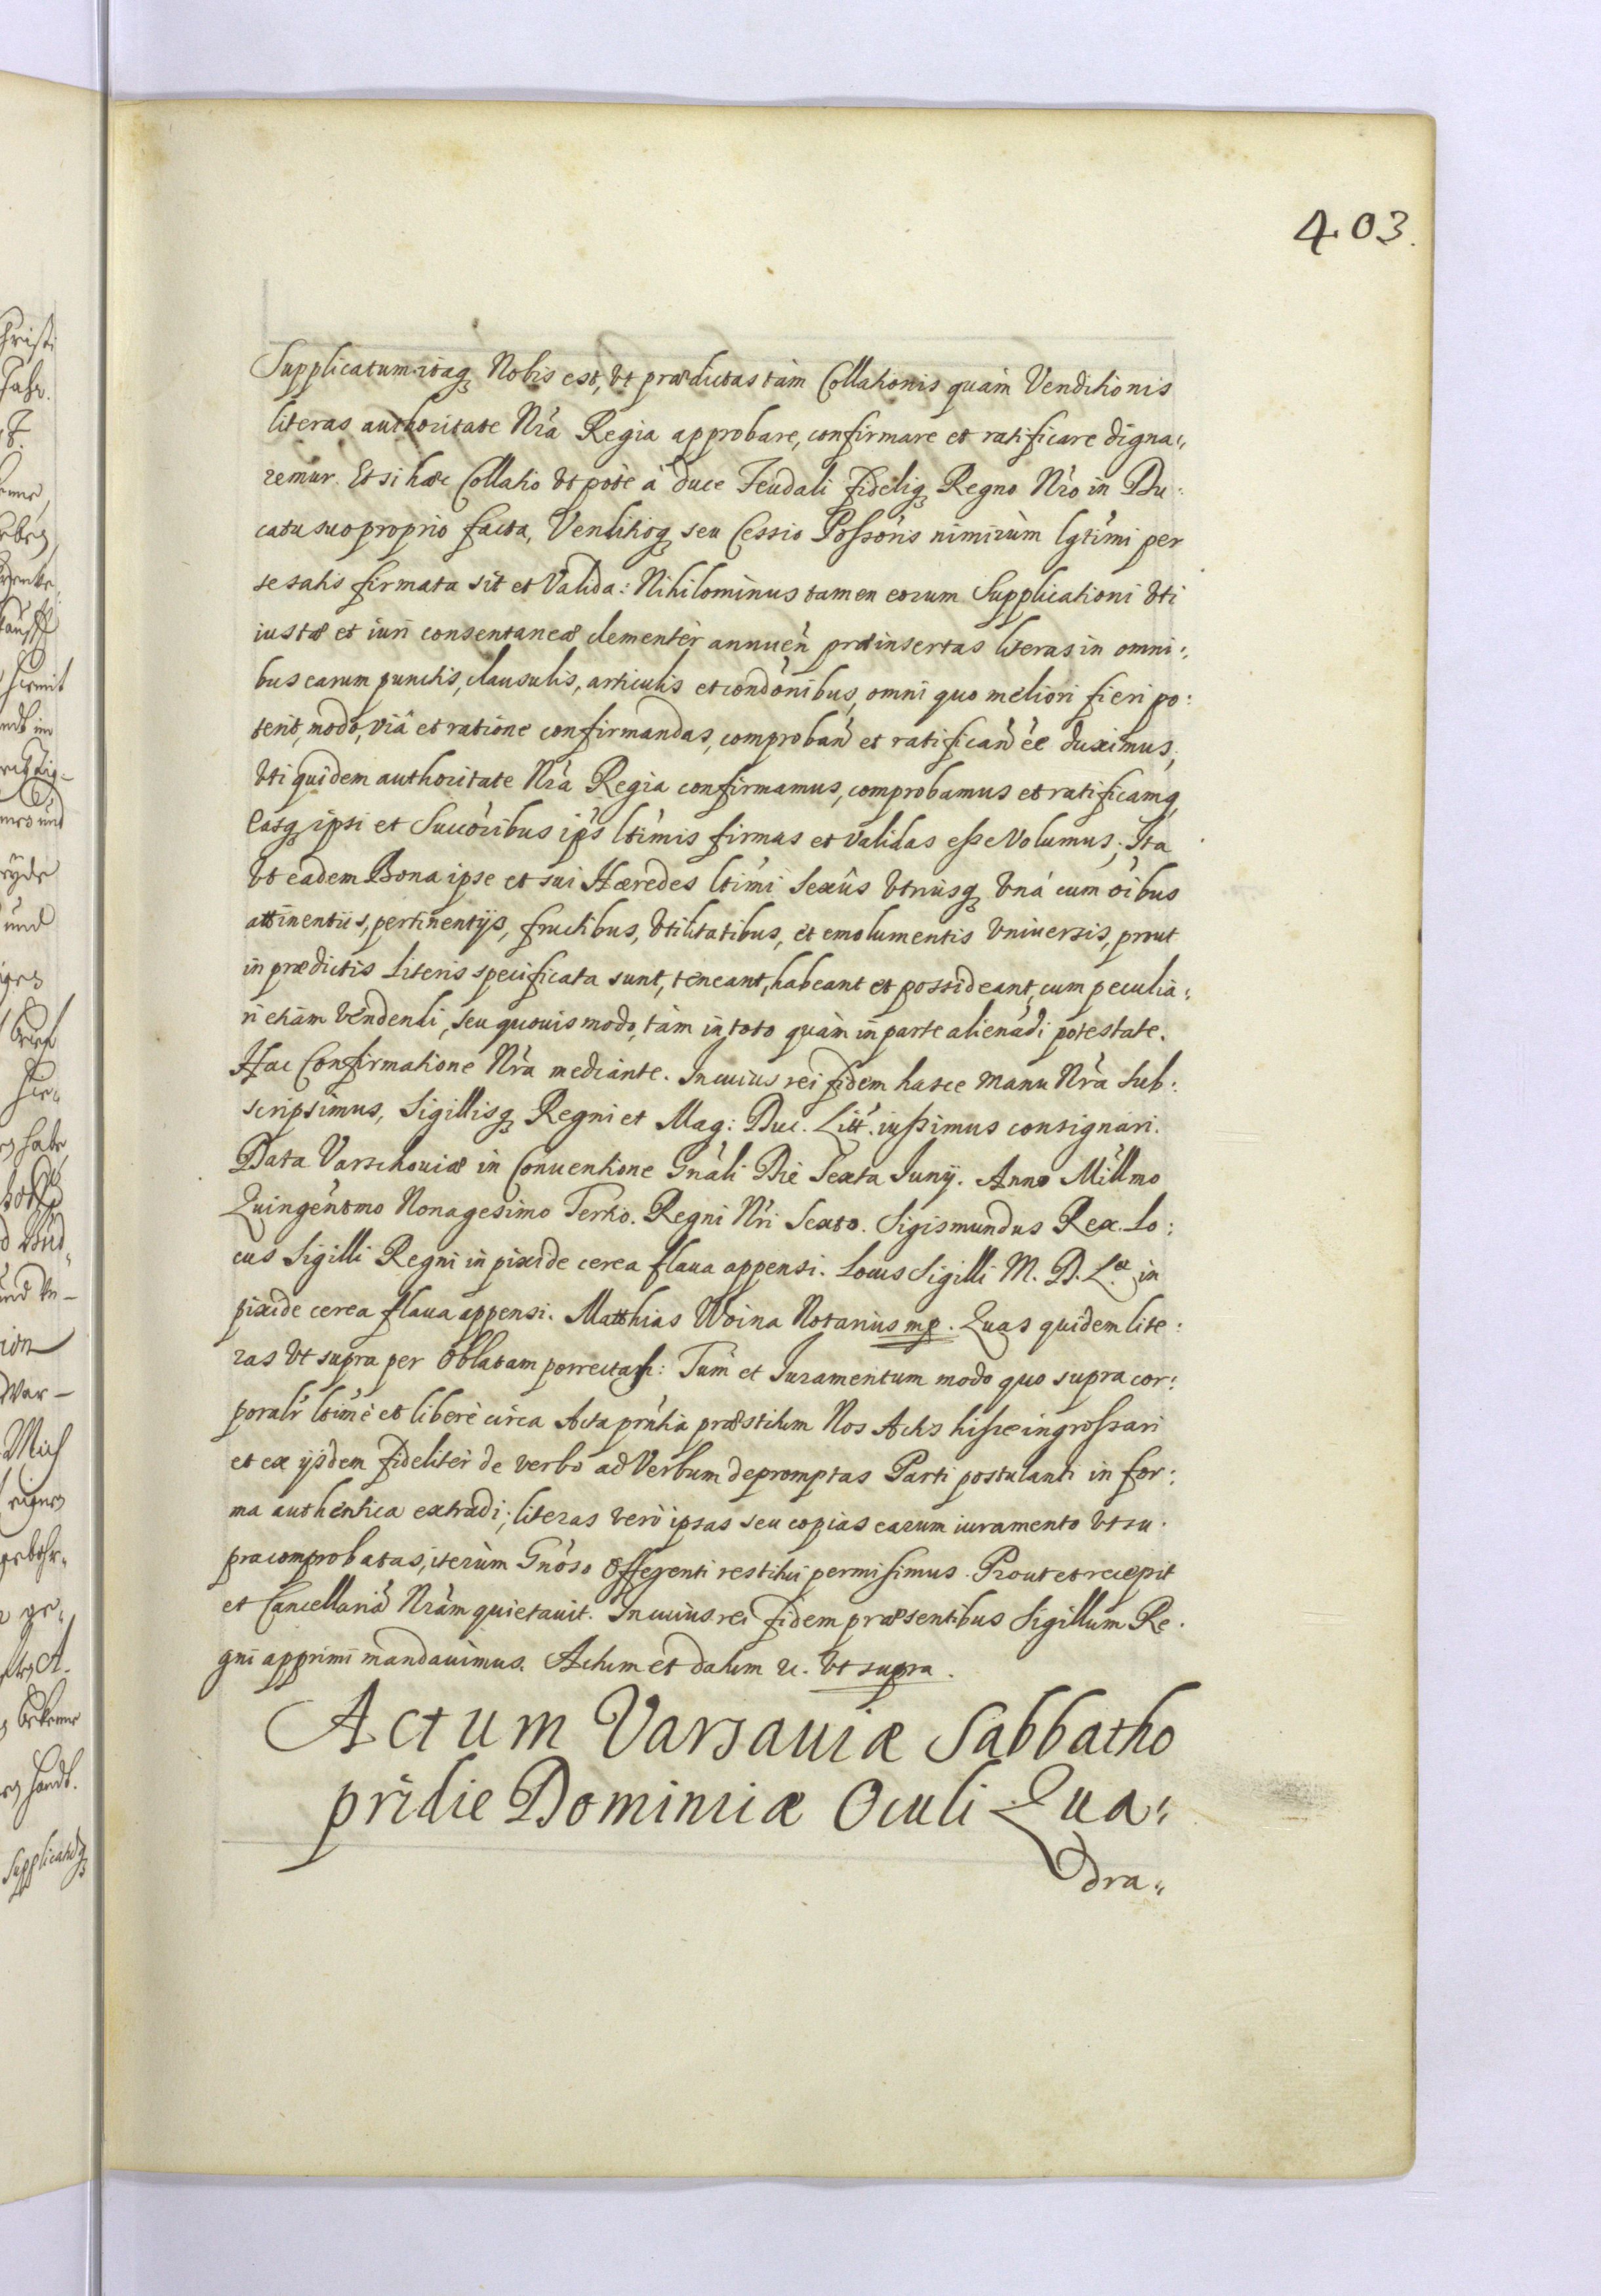 403.
Supplicatum itaq Nobis est, vt prædictas tàm Collationis quàm Venditionis
literas authoritate Nrà Regia approbare, confirmare et ratificare digna„
remur. Etsi hæc Collatio vt potè à duce Feudali fideliq Regno Nrò in Du:
catu suo proprio facta, Venditioq seu Cessio Possóris nimirùm lgtími per
se satis firmata sit et Valida: Nihilominus tamen eorum Supplicationi vti
iustæ et iuri consentaneæ clementèr annueǹ præinsertas literas in omni:
bus earum punctis, clausulis, articulis et condònibus, omni quo meliori fieri po:
terit, modo, viâ et ratione confirmandas, comproban̄ et ratifican̄ èe duximus,
vti quidem authoritate Nrà Regia confirmamus, comprobamus et ratificamq
Easq ipsi et Succòribus ip̀s ltímis firmas et validas esse Volumus; Ita
vt eadem Bona ipse et sui Hæredes ltími Sexûs vtriusq vnà cum òibus
attinentiis, pertinentijs, fructibus, vtilitatibus, et emolumentis vniuersis, prout
in prædictis Literis specificata sunt, teneant, habeant et possideant, cum peculia„
ri etiam vendendi, seu quouis modo, tàm in toto quàm in parte alienādi potestate.
Hac Confirmatione Nrà mediante. In cuius rei fidem hasce manu Nrà Sub:
scripsimus, Sigillisq Regni et Mag: Duc. Litt̀. iussimus consignari.
Data Varschouiæ in Conuentione Gnàli Die Sexta Junij. Anno Mìllmo
Quingèntmo Nonagesimo Tertio. Regni Nrì Sexto. Sigismundus Rex. Lo:
cus Sigilli Regni in pixide cerea flaua appensi. Locus Sigilli M. D. L.æ in
pixide cerea flaua appensi. Matthias Woina Notarius mp. Quas quidem lite:
ras vt supra per Oblatam porrectas: Tum et Juramentum modo quo supra cor:
poralr̀ ltímè et liberè circa Acta prǹtia præstitum Nos Actis hisce ingrossari
et ex ijsdem fidelitèr de verbo ad Verbum depromptas Parti postulanti in for:
ma authentica extradi; literas verò ipsas seu copias earum iuramento vt su:
pra comprobatas, iterùm Gnòso Offerenti restitui permisimus. Prout et recepit
et Cancellariā Nràm quietauit. In cuius rei fidem præsentibus Sigillum Re:
gni apprimi mandauimus. Actum et datum &c. vt supra.
Actum Varsauiæ Sabbatho
pridie Dominicæ Oculi Qua„
dra„